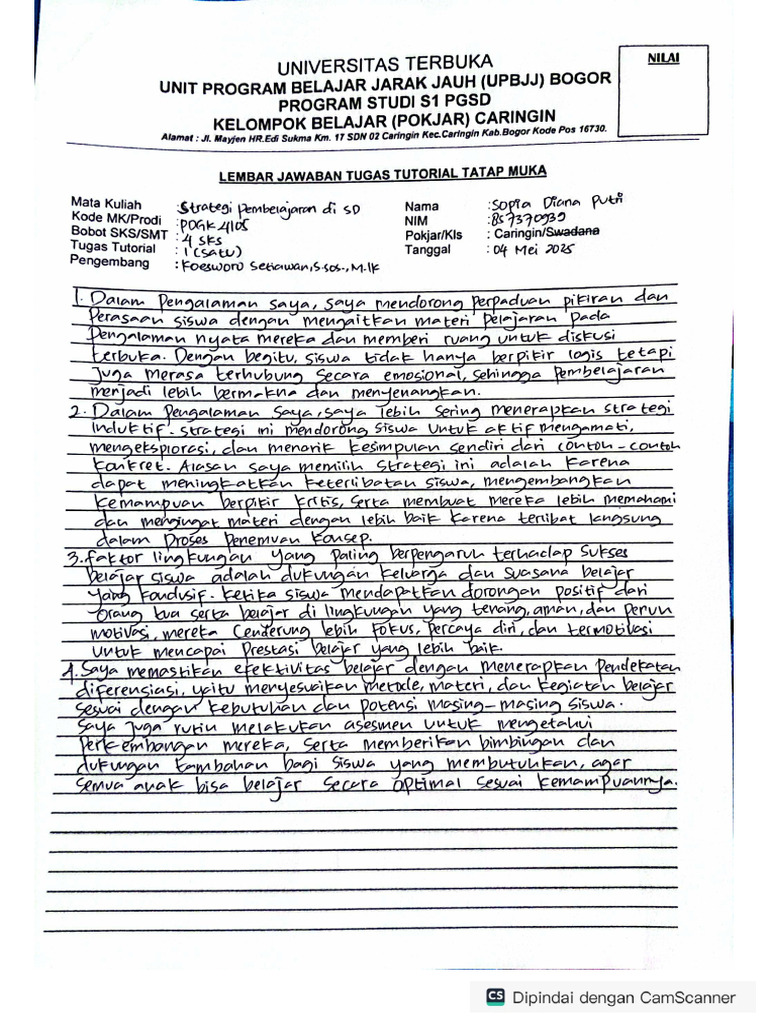 UNIVERSITAS TERBUKA
UNIT PROGRAM BELAJAR JARAK JAUH (UPBJJ) BOGOR
PROGRAM STUDI S1 PGSD
KELOMPOK BELAJAR (POKJAR) CARINGIN
Alamat : Jl. Mayjen HR.Edi Sukma Km. 17 SDN 02 Caringin Kec.Caringin Kab.Bogor Kode Pos 16730.
NILAI
LEMBAR JAWABAN TUGAS TUTORIAL TATAP MUKA
Mata Kuliah : Strategi Pembelajaran di SD
Kode MK/Prodi : PDGK4105
Bobot SKS/SMT : 4 SKS
Tugas Tutorial : 1 (satu)
Pengembang : Koesworo Setiawan, S.Sos., M.Ik
Nama : Sopia Diana Putri
NIM : 857370939
Pokjar/Kls : Caringin/Swadana
Tanggal : 04 Mei 2025
1. Dalam Pengalaman saya, saya mendorong perpaduan pikiran dan
Perasaan siswa dengan mengaitkan materi pelajaran pada
Pengalaman nyata mereka dan memberi ruang untuk diskusi
terbuka. Dengan begitu, siswa tidak hanya berpikir logis tetapi
Juga merasa terhubung secara emosional, sehingga pembelajaran
menjadi lebih bermakna dan menyenangkan.
2. Dalam Pengalaman saya, saya lebih sering menerapkan strategi
Induktif. strategi ini mendorong siswa untuk aktif mengamati,
mengeksplorasi, dan menarik kesimpulan sendiri dari contoh-contoh
konkret. Alasan saya memilih strategi ini adalah karena
dapat meningkatkan keterlibatan siswa, mengembangkan
kemampuan berpikir kritis, serta membuat mereka lebih memahami
dan mengingat materi dengan lebih baik karena terlibat langsung
dalam Proses Penemuan konsep.
3. faktor lingkungan yang paling berpengaruh terhadap sukses
belajar siswa adalah dukungan keluarga dan suasana belajar
yang kondusif. ketika siswa mendapatkan dorongan positif dari
orang tua serta belajar di lingkungan yang tenang, aman, dan penuh
motivasi, mereka cenderung lebih fokus, percaya diri, dan termotivasi
untuk mencapai prestasi belajar yang lebih baik.
4. Saya memastikan efektivitas belajar dengan menerapkan Pendekatan
diferensiasi, yaitu menyesuaikan metode, materi, dan kegiatan belajar
sesuai dengan kebutuhan dan potensi masing-masing siswa.
Saya Juga rutin melakukan asesmen untuk mengetahui
Perkembangan mereka, serta memberikan bimbingan dan
dukungan tambahan bagi siswa yang membutuhkan, agar
semua anak bisa belajar secara optimal sesuai kemampuannya.
CS Dipindai dengan CamScanner